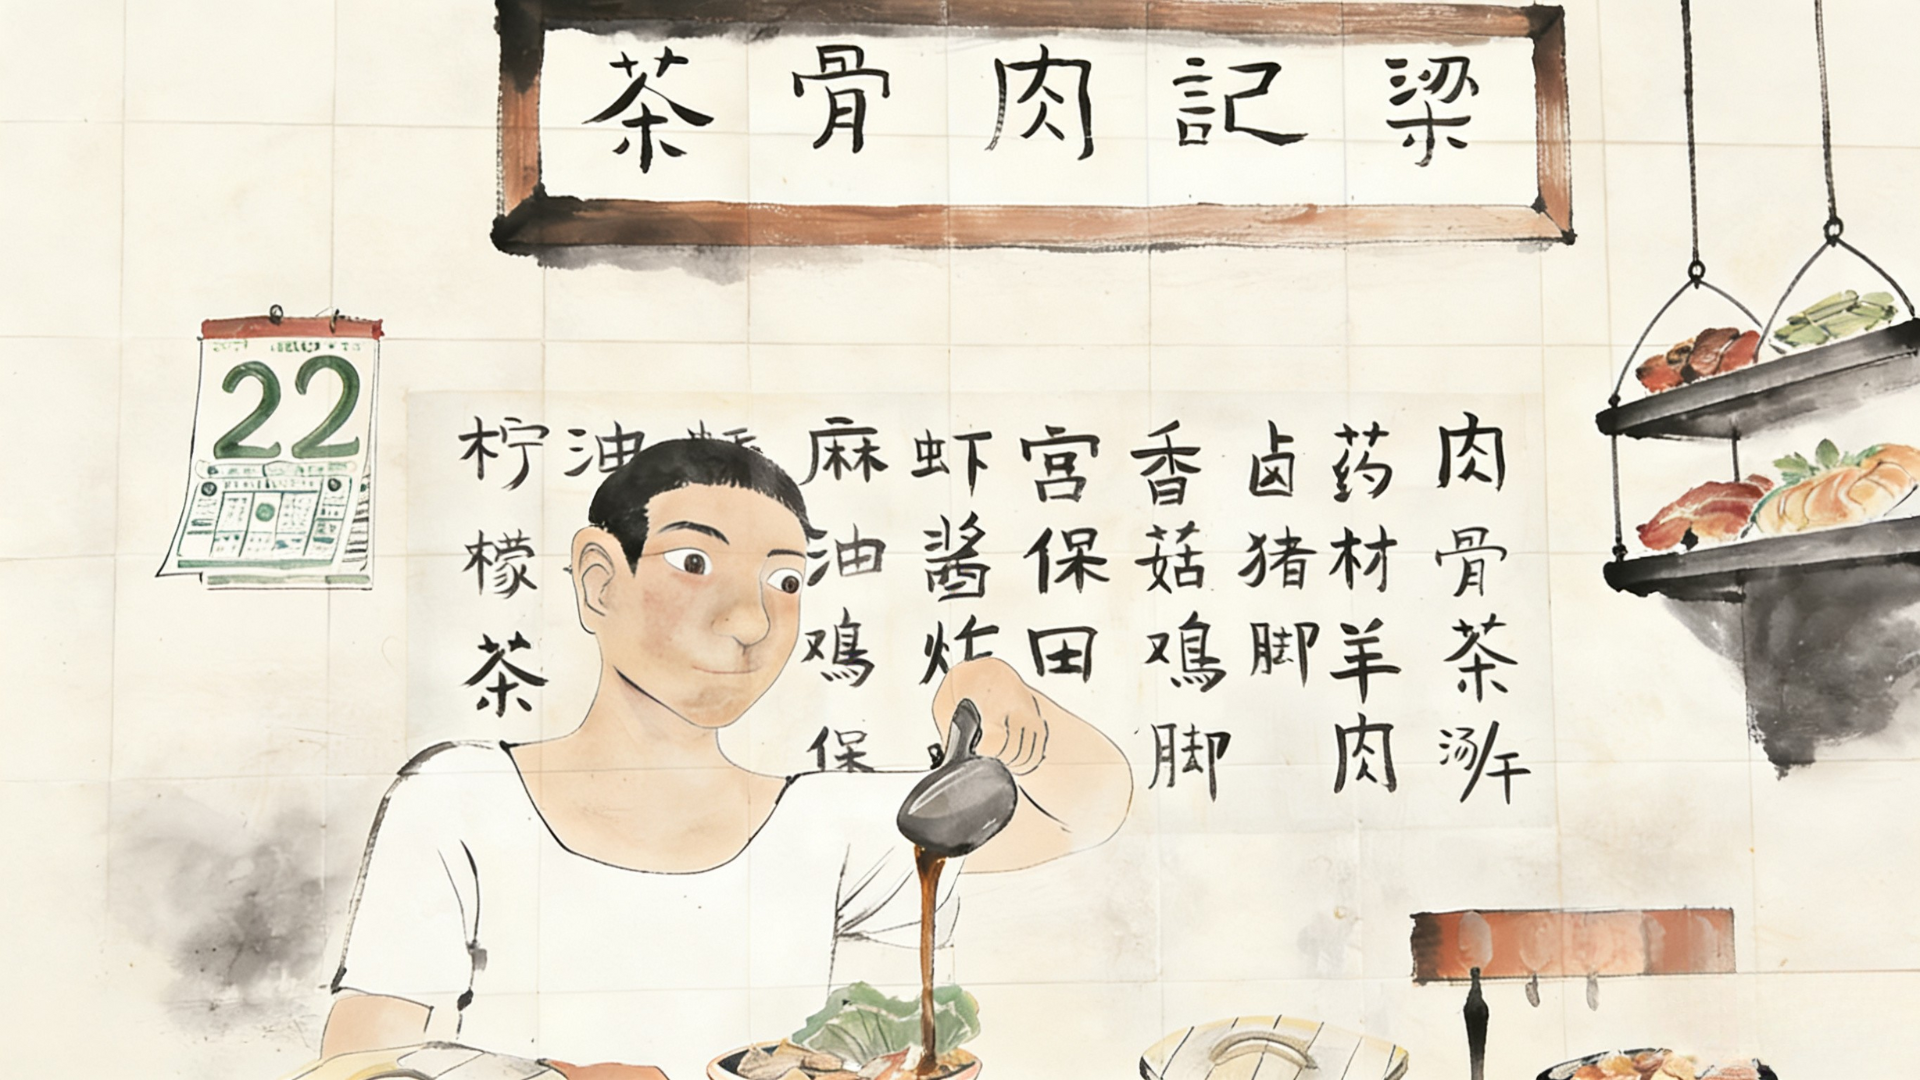 梁記肉骨茶
22
肉骨茶
药材羊肉
卤猪脚
香菇鸡脚
宫保田
虾酱炸
麻油鸡
保
油
柠檬茶